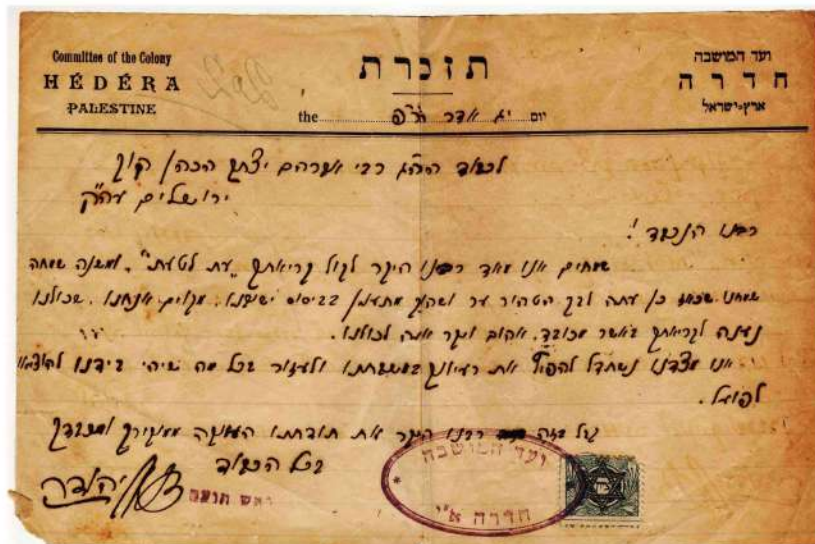 Committee of the Colony
HÉDÉRA
PALESTINE
תזכרת
ועד המושבה
חדרה
ארץ-ישראל
the יום יג אדר תר"פ
לכבוד הרה"ג רבי אברהם יצחק הכהן קוק
ירושלים עה"ק
רבנו הנכבד!
שמחים אנו מאד רבנו היקר לקול קריאתך "עת לטעת", ומשנה שמחה
שמחנו כן עתה לבך הטהור ער ושהנך מתענין בביסוס ישובנו. מקוים אנחנו, שכולנו
נענה לקריאתך באשר מכובד, אהוב ויקר אתה לכולנו.
אנו מצדנו נשתדל להפיץ את רעיונך במושבתנו ולעזור בכל מה שיהי בידנו להוציאו
לפועל.
קבל בזה רבנו היקר את תודתנו העמוקה ממוקירך ומכבדך
בכל הכבוד
ראש הועד
ועד המושבה
חדרה א"י